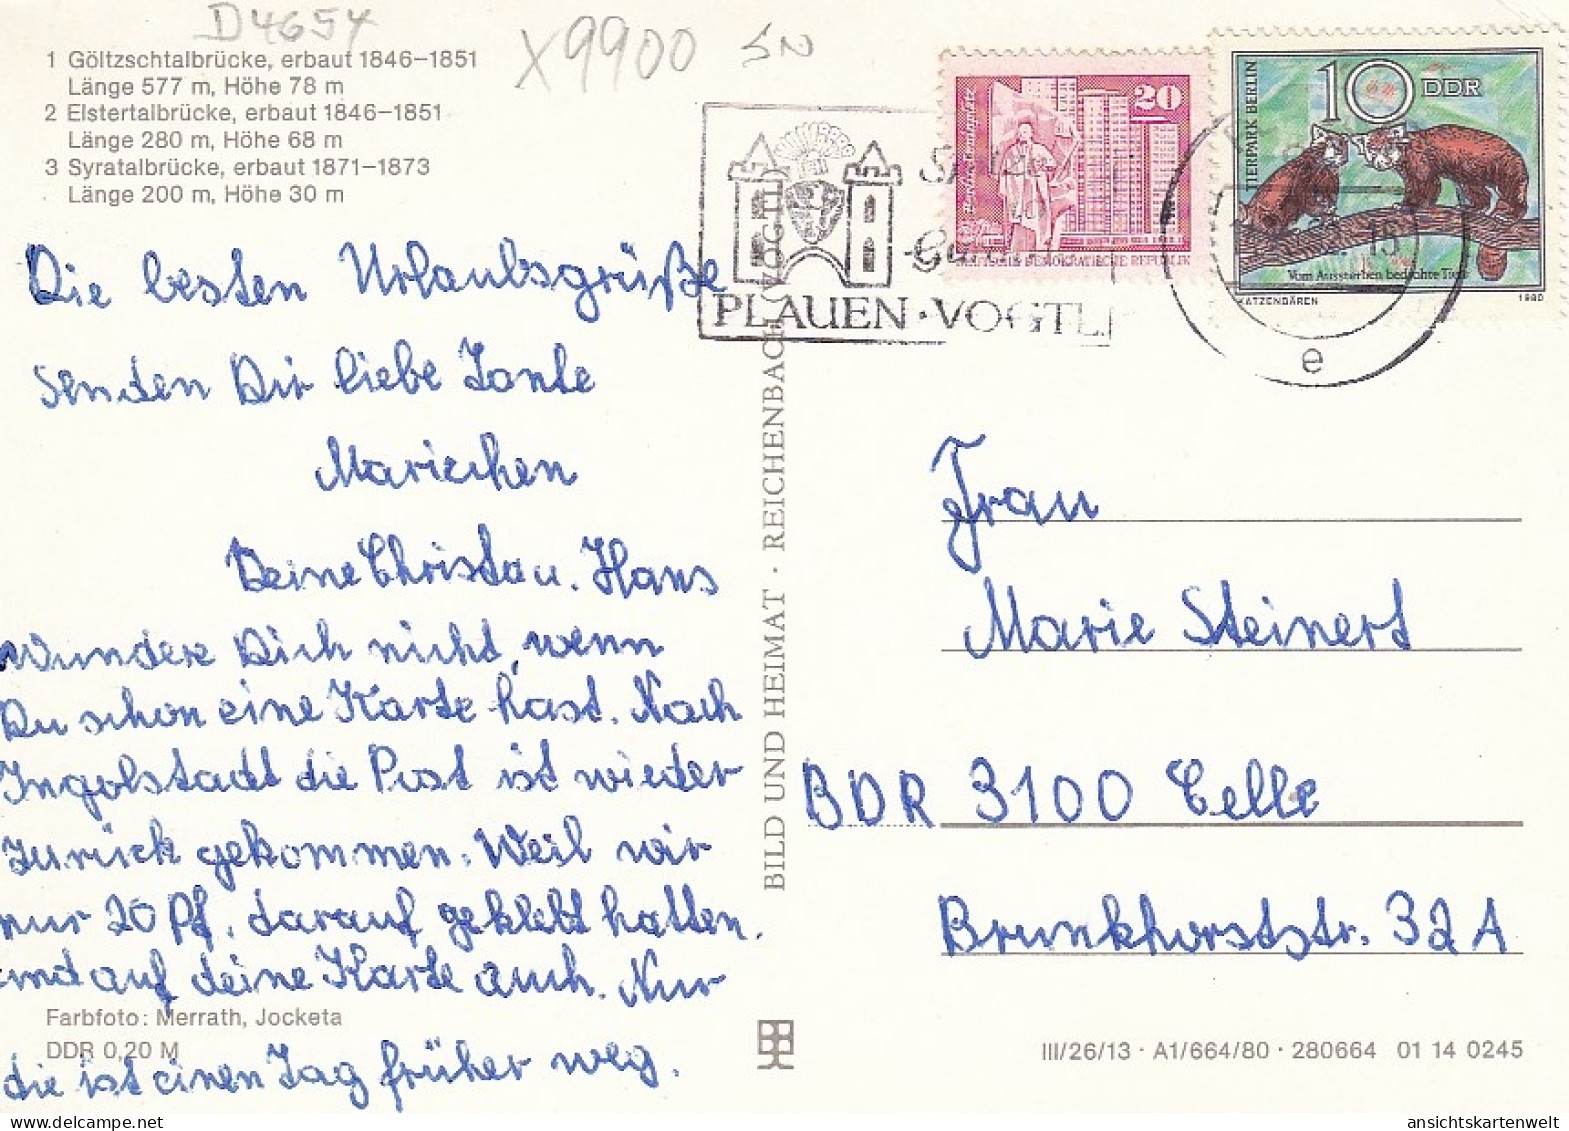 D4654
X9900 SN
1 Göltzschtalbrücke, erbaut 1846–1851
Länge 577 m, Höhe 78 m
2 Elstertalbrücke, erbaut 1846–1851
Länge 280 m, Höhe 68 m
3 Syratalbrücke, erbaut 1871–1873
Länge 200 m, Höhe 30 m
Die besten Urlaubsgrüße
senden Dir liebe Tante
Mariechen
Deine Christa u. Hans
Wundere Dich nicht, wenn
Du schon eine Karte hast. Nach
Ingolstadt die Post ist wieder
zurück gekommen. Weil wir
nur 20 Pf. darauf geklebt hatten.
und auf deine Karte auch. Nur
die ist einen Tag früher weg.
Farbfoto: Merrath, Jocketa
DDR 0,20 M
BILD UND HEIMAT · REICHENBACH (VOGTL)
PLAUEN · VOGTL
20
DEUTSCHE DEMOKRATISCHE REPUBLIK
TIERPARK BERLIN
10 DDR
Vom Aussterben bedrohte Tiere
KATZENBÄREN 1980
e
Frau
Marie Steinert
BDR 3100 Celle
Brunkhorststr. 32 A
III/26/13 · A1/664/80 · 280664 01 14 0245
ansichtskartenwelt